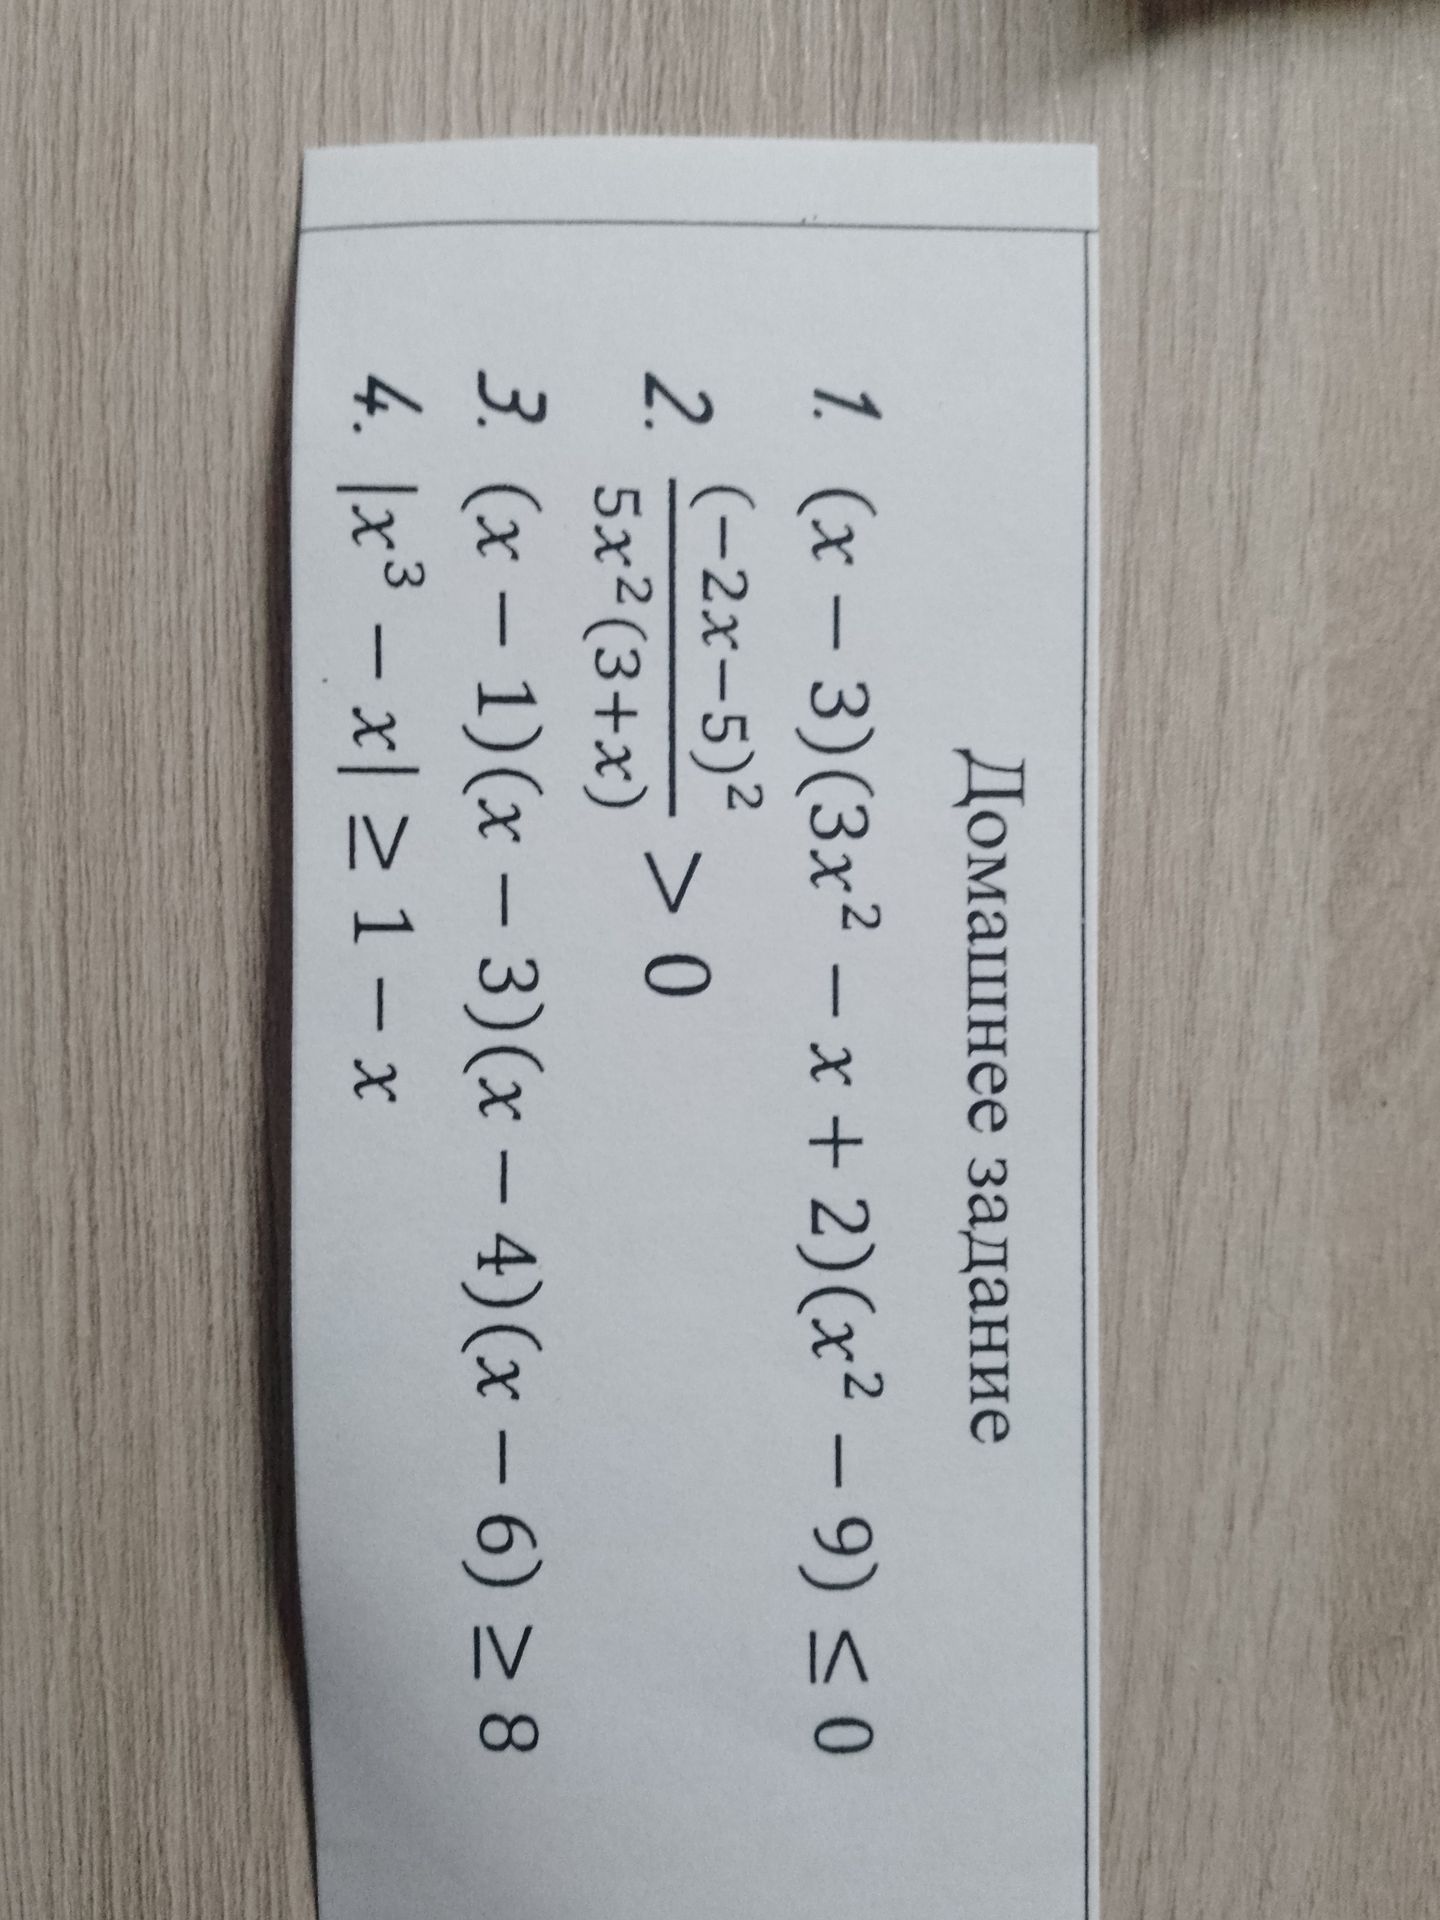 Домашнее задание
1. (x − 3)(3x² − x + 2)(x² − 9) ≤ 0
2. (−2x−5)²/(5x²(3+x)) > 0
3. (x − 1)(x − 3)(x − 4)(x − 6) ≥ 8
4. |x³ − x| ≥ 1 − x